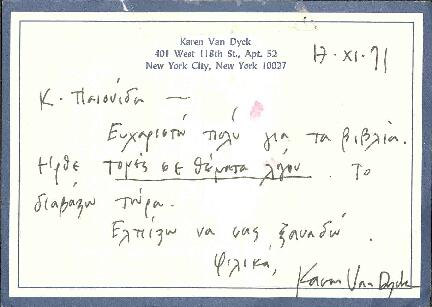 Karen Van Dyck
401 West 118th St., Apt. 52
New York City, New York 10027
17·XI·91
Κ. Παιονίδη —
Ευχαριστώ πολύ για τα βιβλία.
Ήρθε Τομές σε θέματα λόγου. Το
διαβάζω τώρα.
Ελπίζω να σας ξαναδώ.
Φιλικά,
Karen Van Dyck